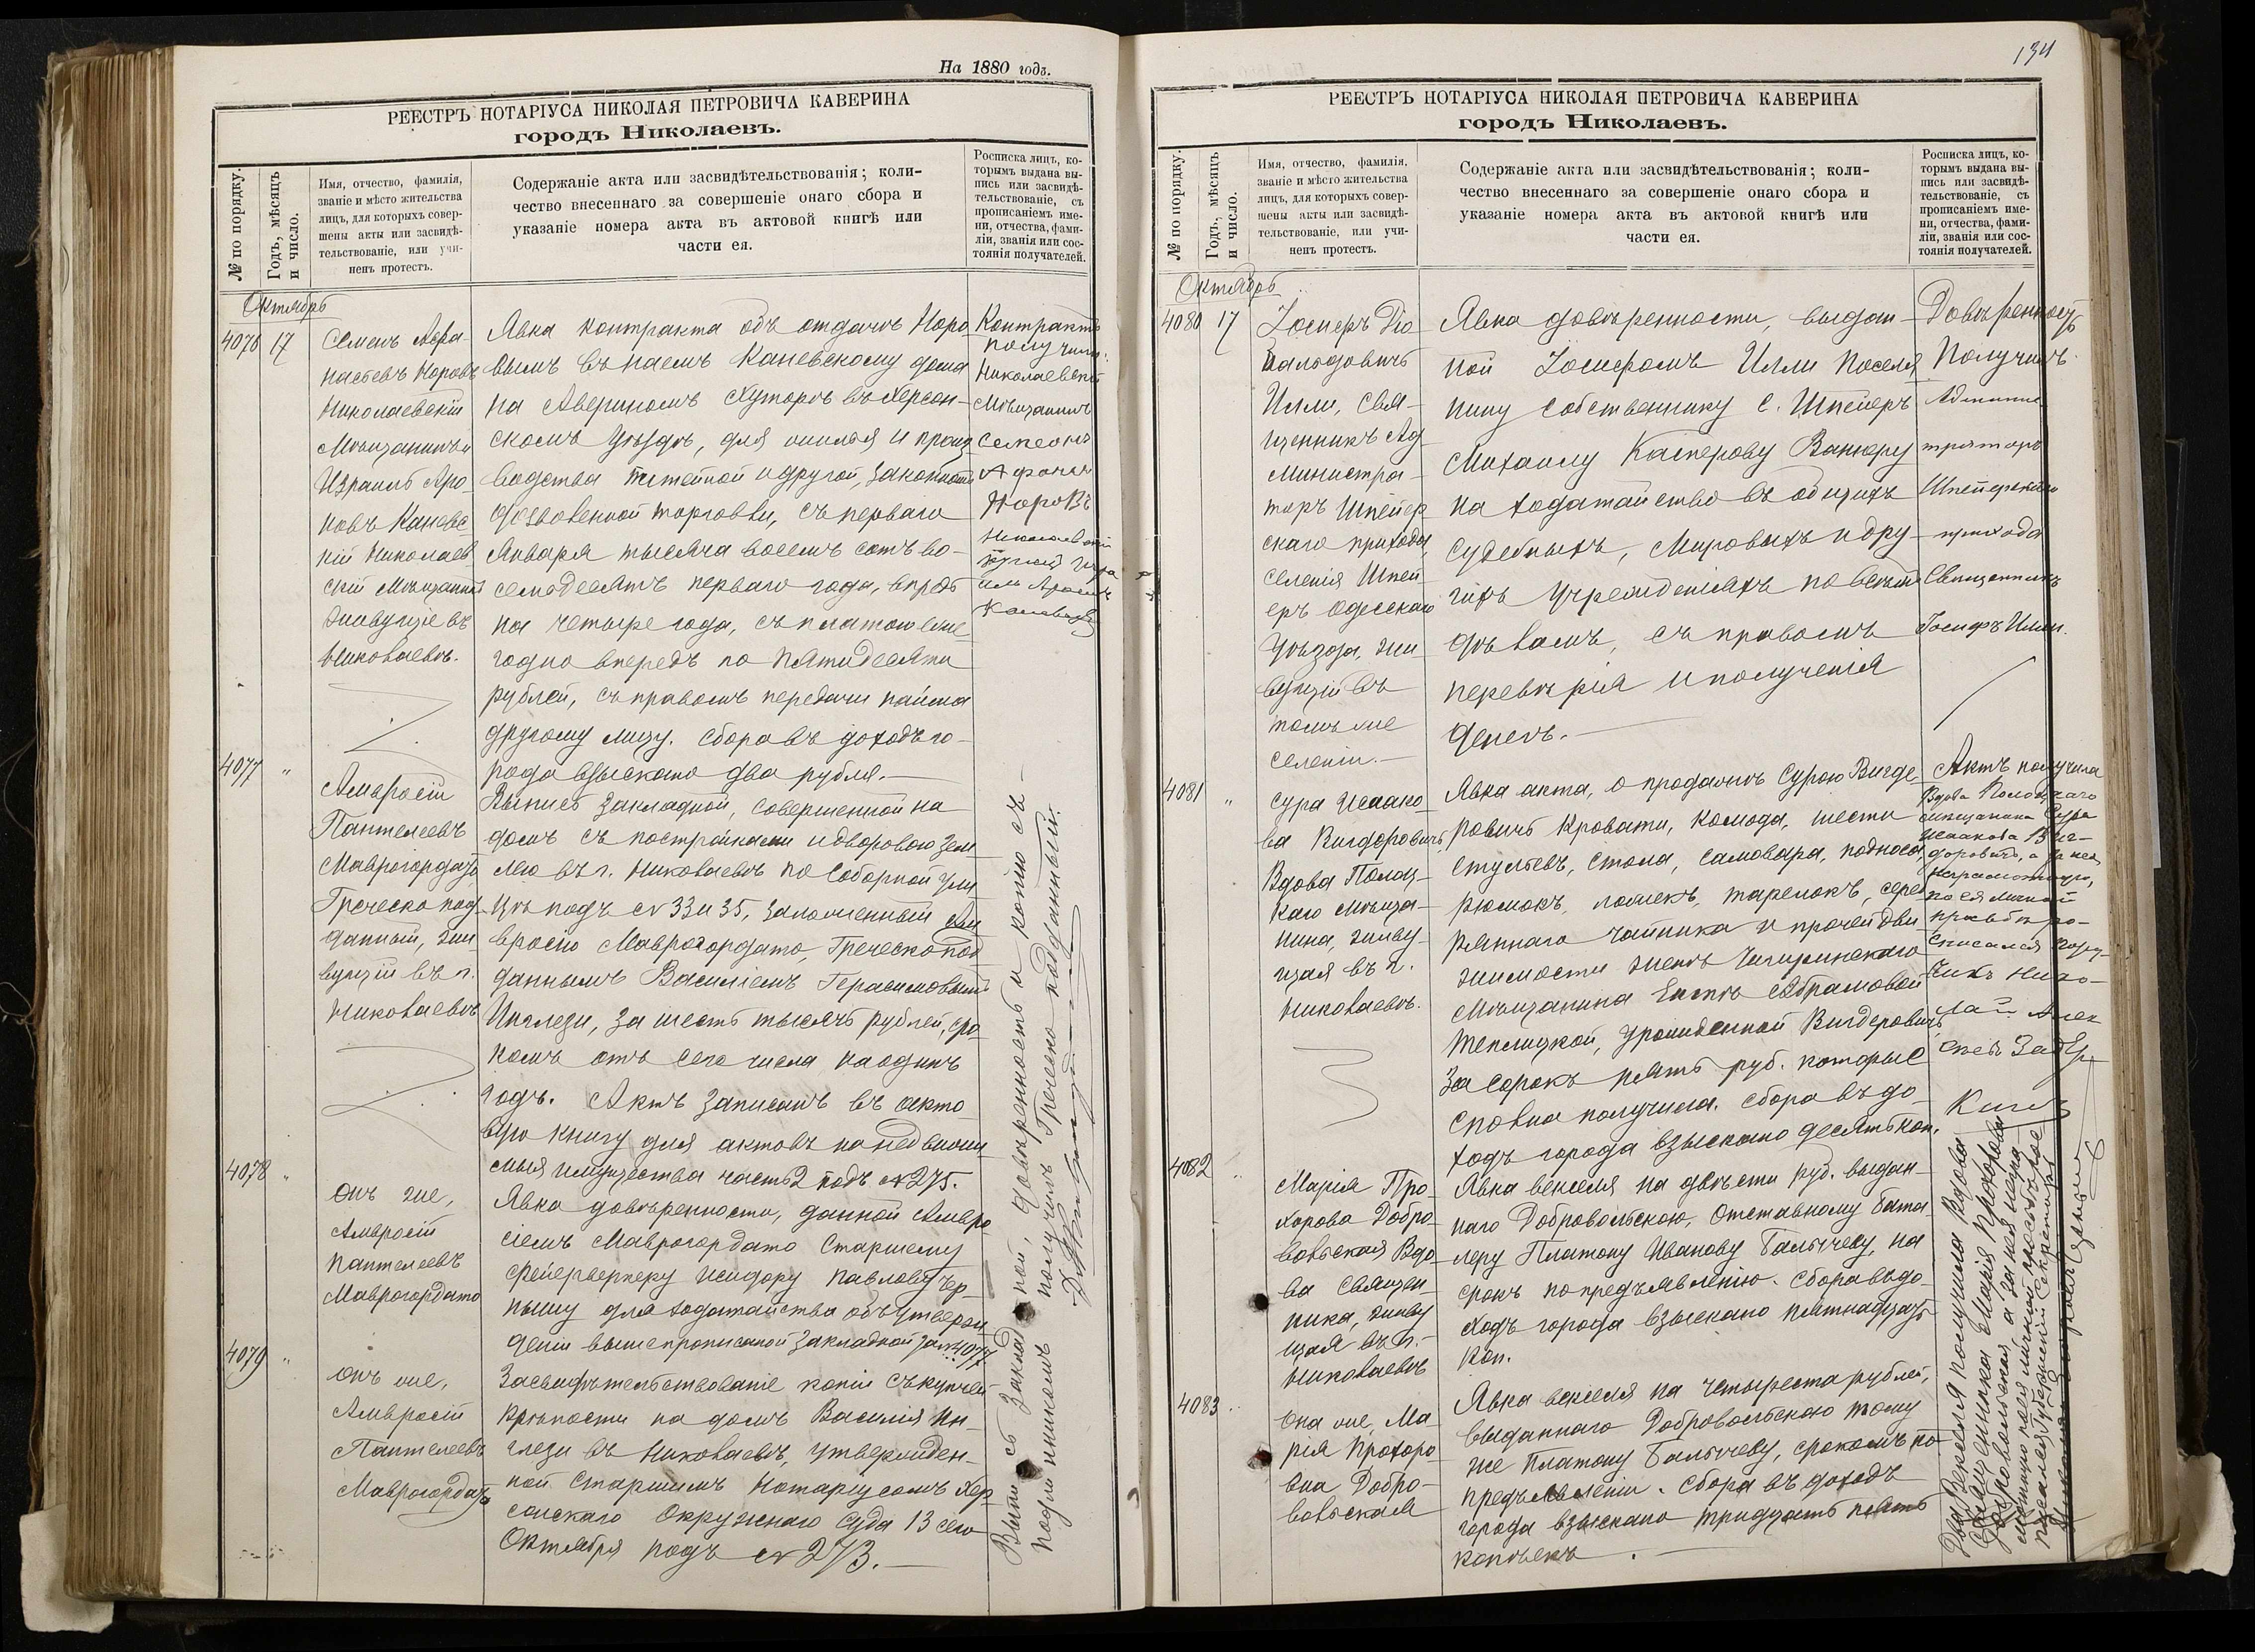 На 1880 годъ.
РЕЕСТРЪ НОТАРІУСА НИКОЛАЯ ПЕТРОВИЧА КАВЕРИНА
городъ Николаевъ.
№ по порядку.
Годъ, мѣсяцъ
и число.
Имя, отчество, фамилія,
званіе и мѣсто жительства
лицъ, для которыхъ совер-
шены акты или засвидѣ-
тельствованіе, или учи-
ненъ протестъ.
Содержаніе акта или засвидѣтельствованія; коли-
чество внесеннаго за совершеніе онаго сбора и
указаніе номера акта въ актовой книгѣ или
части ея.
Росписка лицъ, ко-
торымъ выдана вы-
пись или засвидѣ-
тельствованіе, съ
прописаніемъ име-
ни, отчества, фами-
ліи, званія или сос-
тоянія получателей.
Октябрь
4076 17
Семенъ Афа-
насьевъ Норовъ
Николаевскій
Мѣщанинъ и
Израиль Аро-
новъ Каневс-
кій Николаев
скій Мѣщанинъ
живущіе въ
Николаевѣ.
Явка контракта объ отдачѣ Норо-
вымъ въ наемъ Каневскому дома
на Аверкиномъ Хуторѣ въ Херсон-
скомъ уѣздѣ, для жилья и произ
водства питейной и другой, закономъ
дозволенной торговли, съ перваго
Января тысяча восемь сотъ во-
семьдесятъ перваго года, впредь
на четыре года, съ платою еже-
годно впередъ по пятидесяти
рублей, съ правомъ передачи найма
другому лицу. Сбора въ доходъ го-
рода взыскано два рубля.—
Контрактъ
получили:
Николаевскій
Мѣщанинъ
Семеонъ
Афанас
Норовъ
Николаевскій
Каневскій
4077 "
Амвросій
Пантелеевъ
Маврогордато
Греческо под-
данный, жи-
вущій въ г.
Николаевѣ
Выпись закладной, совершенной на
домъ съ постройками и дворовою зем
лею въ г. Николаевѣ по Соборной ули
цѣ подъ № 33 и 35, заложенный Ам
вросію Маврогордато, Греческо под
даннымъ Василіемъ Герасимовымъ
Инглези, за шесть тысячъ рублей, сро
комъ отъ сего числа на одинъ
годъ. Актъ записанъ въ акто-
вую книгу для актовъ по недвижи
мыя имущества часть 2 подъ № 275.
4078 "
Онъ же,
Амвросій
Пантелеевъ
Маврогордато
Явка довѣренности, данной Амвро
сіемъ Маврогордато Старшему
Фейерверкеру Исидору Павлову
для ходатайства объ утверж
деніи вышепрописаной закладной за № 4077
4079 "
Онъ же,
Амвросій
Пантелеевъ
Маврогордато
Засвидѣтельствованіе копіи съ купчей
крѣпости на домъ Василія Ин-
глези въ Николаевѣ, утвержден-
ной Старшимъ Нотаріусомъ Хер
сонскаго Окружнаго Суда 13 сего
Октября подъ № 273.—
Выпись закладной, довѣренность и копію съ
получилъ Греческо подданный:
134
РЕЕСТРЪ НОТАРІУСА НИКОЛАЯ ПЕТРОВИЧА КАВЕРИНА
городъ Николаевъ.
№ по порядку.
Годъ, мѣсяцъ
и число.
Имя, отчество, фамилія,
званіе и мѣсто жительства
лицъ, для которыхъ совер-
шены акты или засвидѣ-
тельствованіе, или учи-
ненъ протестъ.
Содержаніе акта или засвидѣтельствованія; коли-
чество внесеннаго за совершеніе онаго сбора и
указаніе номера акта въ актовой книгѣ или
части ея.
Росписка лицъ, ко-
торымъ выдана вы-
пись или засвидѣ-
тельствованіе, съ
прописаніемъ име-
ни, отчества, фами-
ліи, званія или сос-
тоянія получателей.
Октябрь
4080 17
Іосиеръ
Илли, Свя-
щенникъ Ад
министра-
торъ Шпейер
скаго прихода,
селенія Шпей-
еръ Одесскаго
Уѣзда, жи
вущій въ
томъ же
селеніи.—
Явка довѣренности, выдан-
ной Іосифомъ Илли поселя
нину собственнику с. Шпейеръ
Михаилу Касперову Вангеру
на ходатайство въ общихъ
судебныхъ, Мировыхъ и дру-
гихъ учрежденіяхъ по всѣмъ
дѣламъ, съ правомъ
перевѣрія и полученія
денегъ.—
Довѣренность
Получилъ
Админис
траторъ
Шпейерскаго
прихода
Священникъ
Іосифъ Илли.
4081 "
Сура Исаако-
ва Вигдоровичъ,
Вдова Полоц-
каго мѣща-
нина, живу-
щая въ г.
Николаевѣ.
Явка акта, о продажѣ Сурою Вигде-
ровичъ кровати, комода, шести
стульевъ, стола, самовара, подноса,
рюмокъ, ложекъ, тарелокъ, сереб
ряннаго чайника и прочей дви
жимости женѣ Чигиринскаго
мѣщанина Абрамовой
Теплицкой, урожденной Вигдеровичъ
За сорокъ пять руб. которые
сполна получила. Сбора въ до-
ходъ города взыскано десять коп.
Актъ получила
Вдова Полоцкаго
мѣщанина Сура
Исаакова Виг-
доровичъ, а за нея
неграмотную,
по ея личной
просьбѣ ро-
списался
4082 "
Марія Про-
хорова Добро-
вольская Вдо-
ва Священ-
ника, живу
щая въ г.
Николаевѣ
Явка векселя на двѣсти руб. выдан-
наго Добровольскою, Отставному бата-
леру Платону Иванову Балычеву, на
срокъ по предъявленію. Сбора въ до-
ходъ города взыскано пятнадцать
коп.
4083 "
Она же, Ма
рія Прохоро-
вна Добро-
вольская
Явка векселя на четыреста рублей,
выданнаго Добровольскою тому
же Платону Балычеву, срокомъ по
предъявленіи. Сбора въ доходъ
города взыскано тридцать пять
копѣекъ.—
Два векселя получила вдова
Священника Марія Прохорова
Добровольская, а за нея негра-
мотную по ея личной просьбѣ